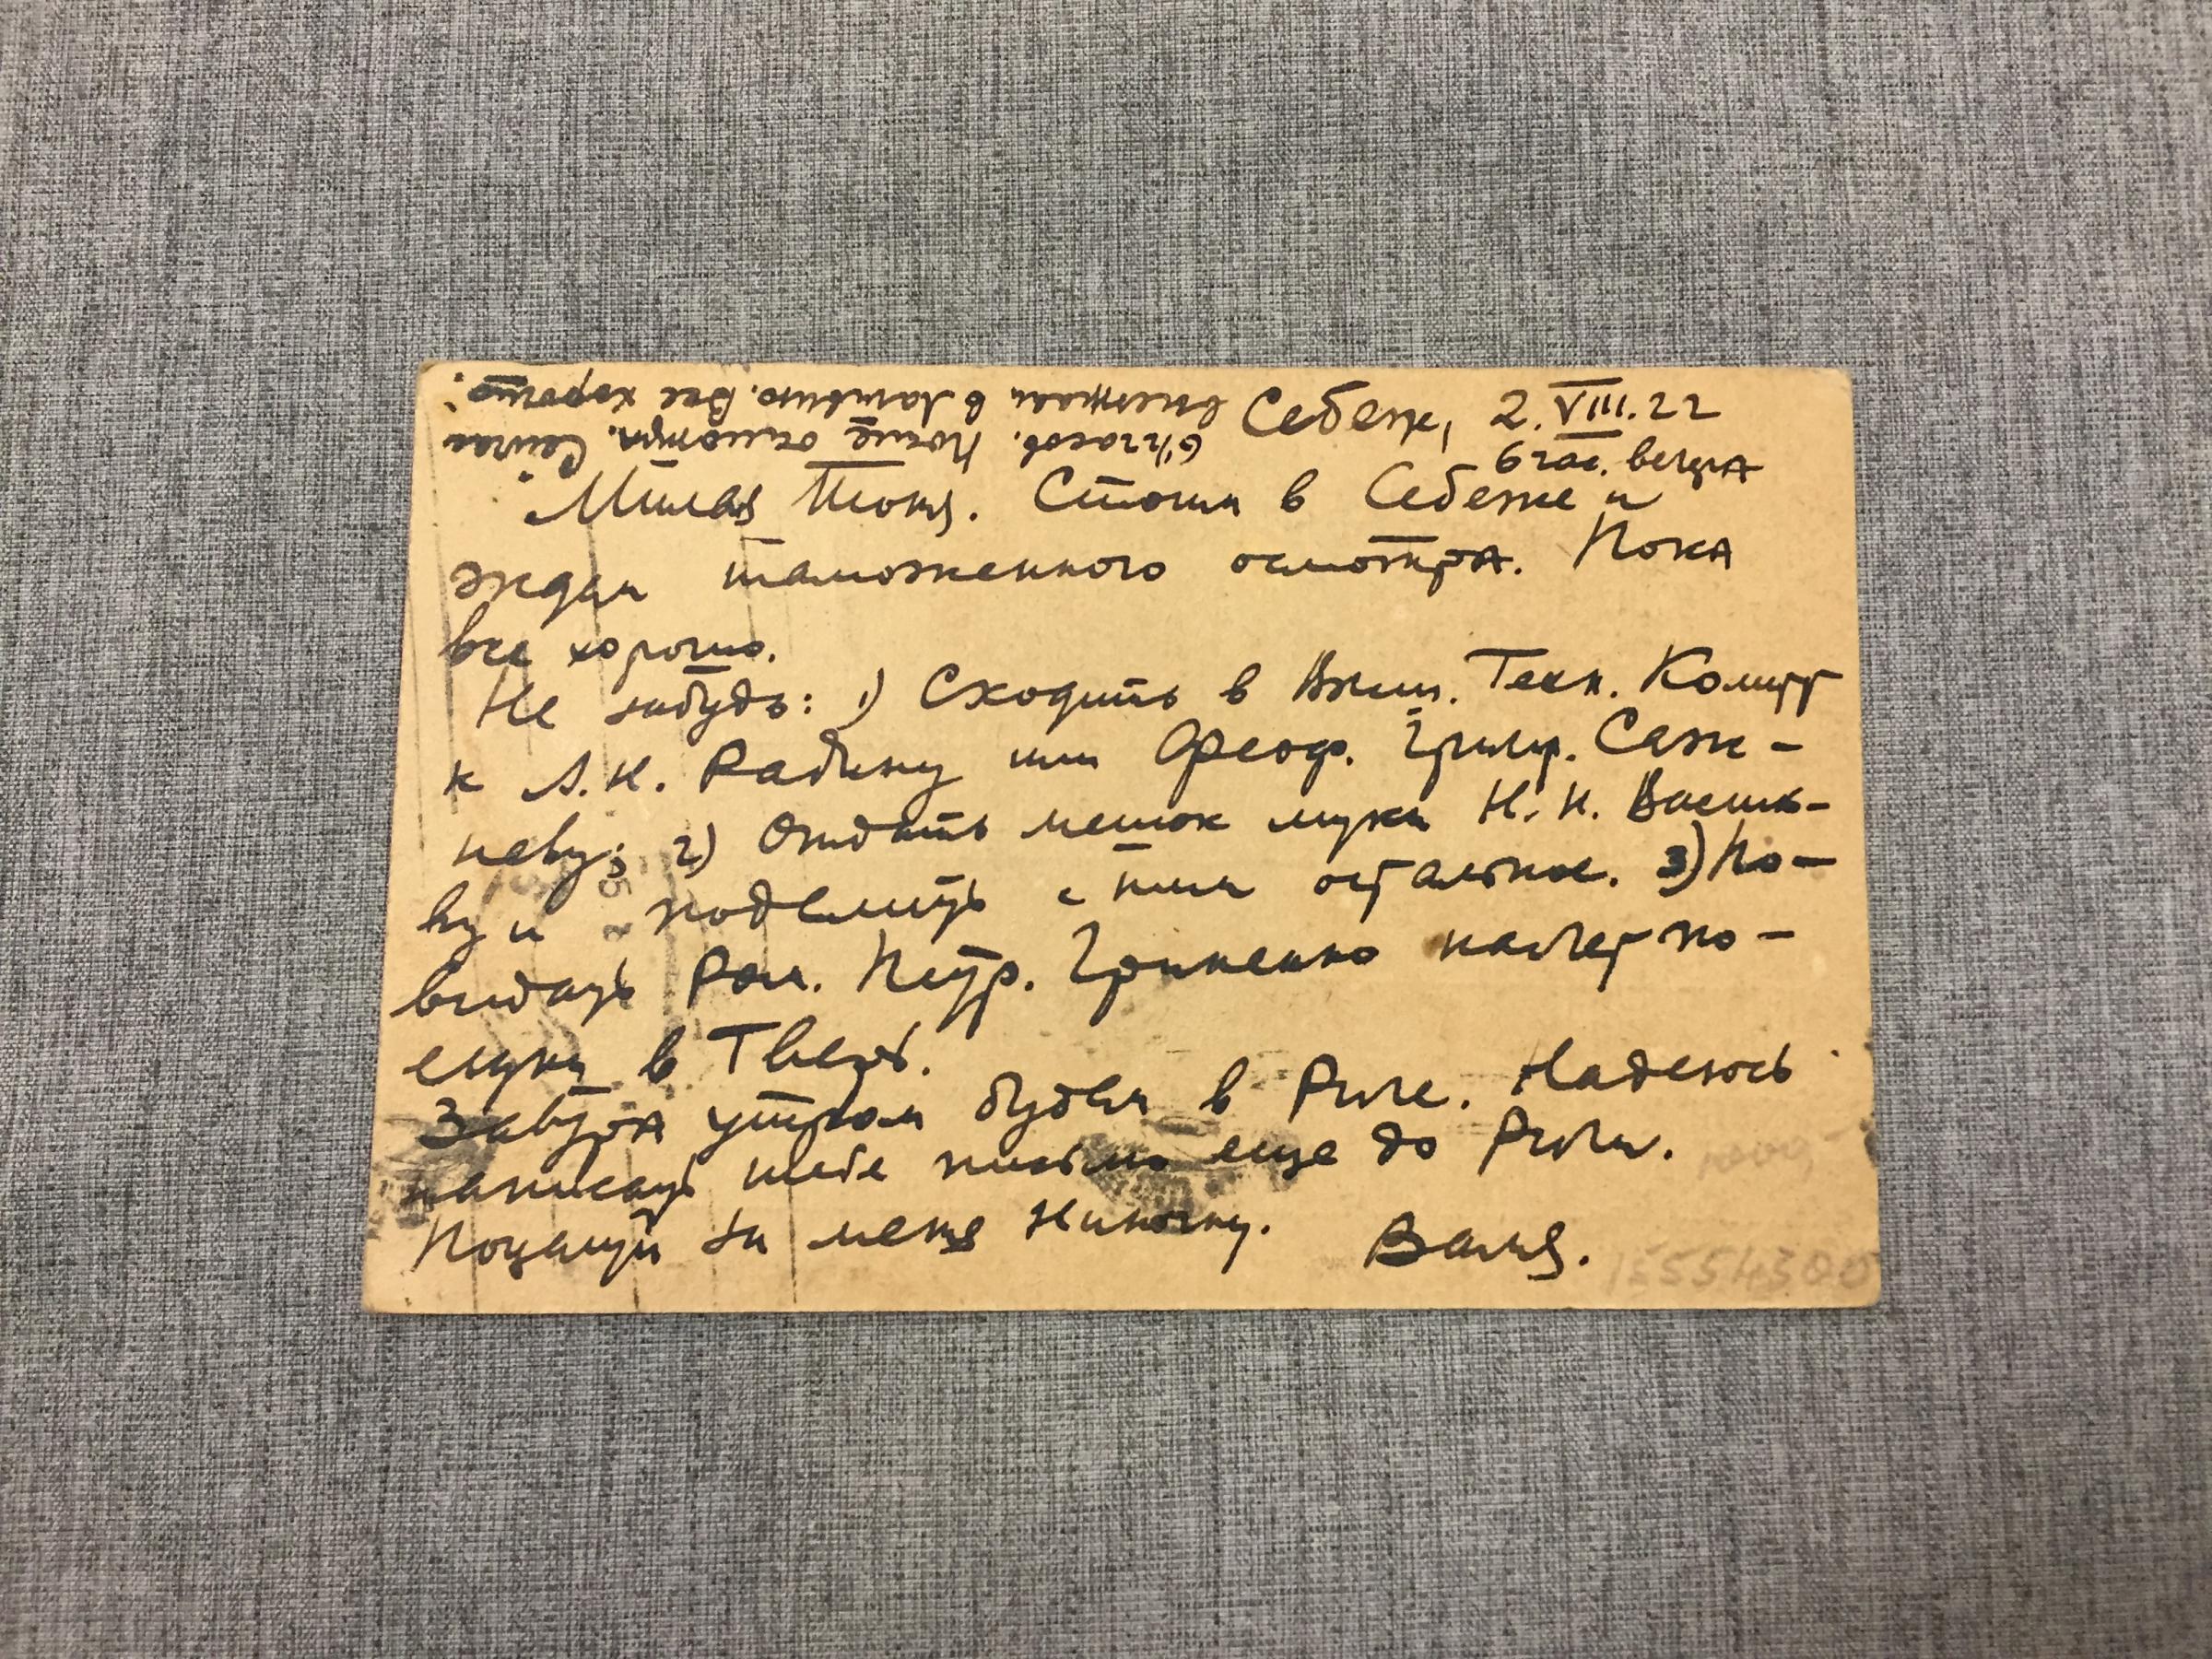 Себеж, 2.VIII.22
6 час. вечера
Милая Тоня. Стоим в Себеже и
ждем таможенного осмотра. Пока
все хорошо.
Не забудь: 1) Сходить в Техн. Комит
к Л.К. Рабину или Феод. Григ. Саж-
неву; 2) Отдать мешок муки Н.Н. Василь-
ву и поделить с ним остальное. 3) По-
видать Ром. Петр. Гриненко насчет по-
ездки в Тверь.
Завтра утром будем в Риге. Надеюсь
написать тебе письмо еще до Риги.
Поцелуй за меня Ниночку. Ваня.
6½ часов. После осмотра. Сейчас
выезжаем в Латвию. Все хорошо.
15554300